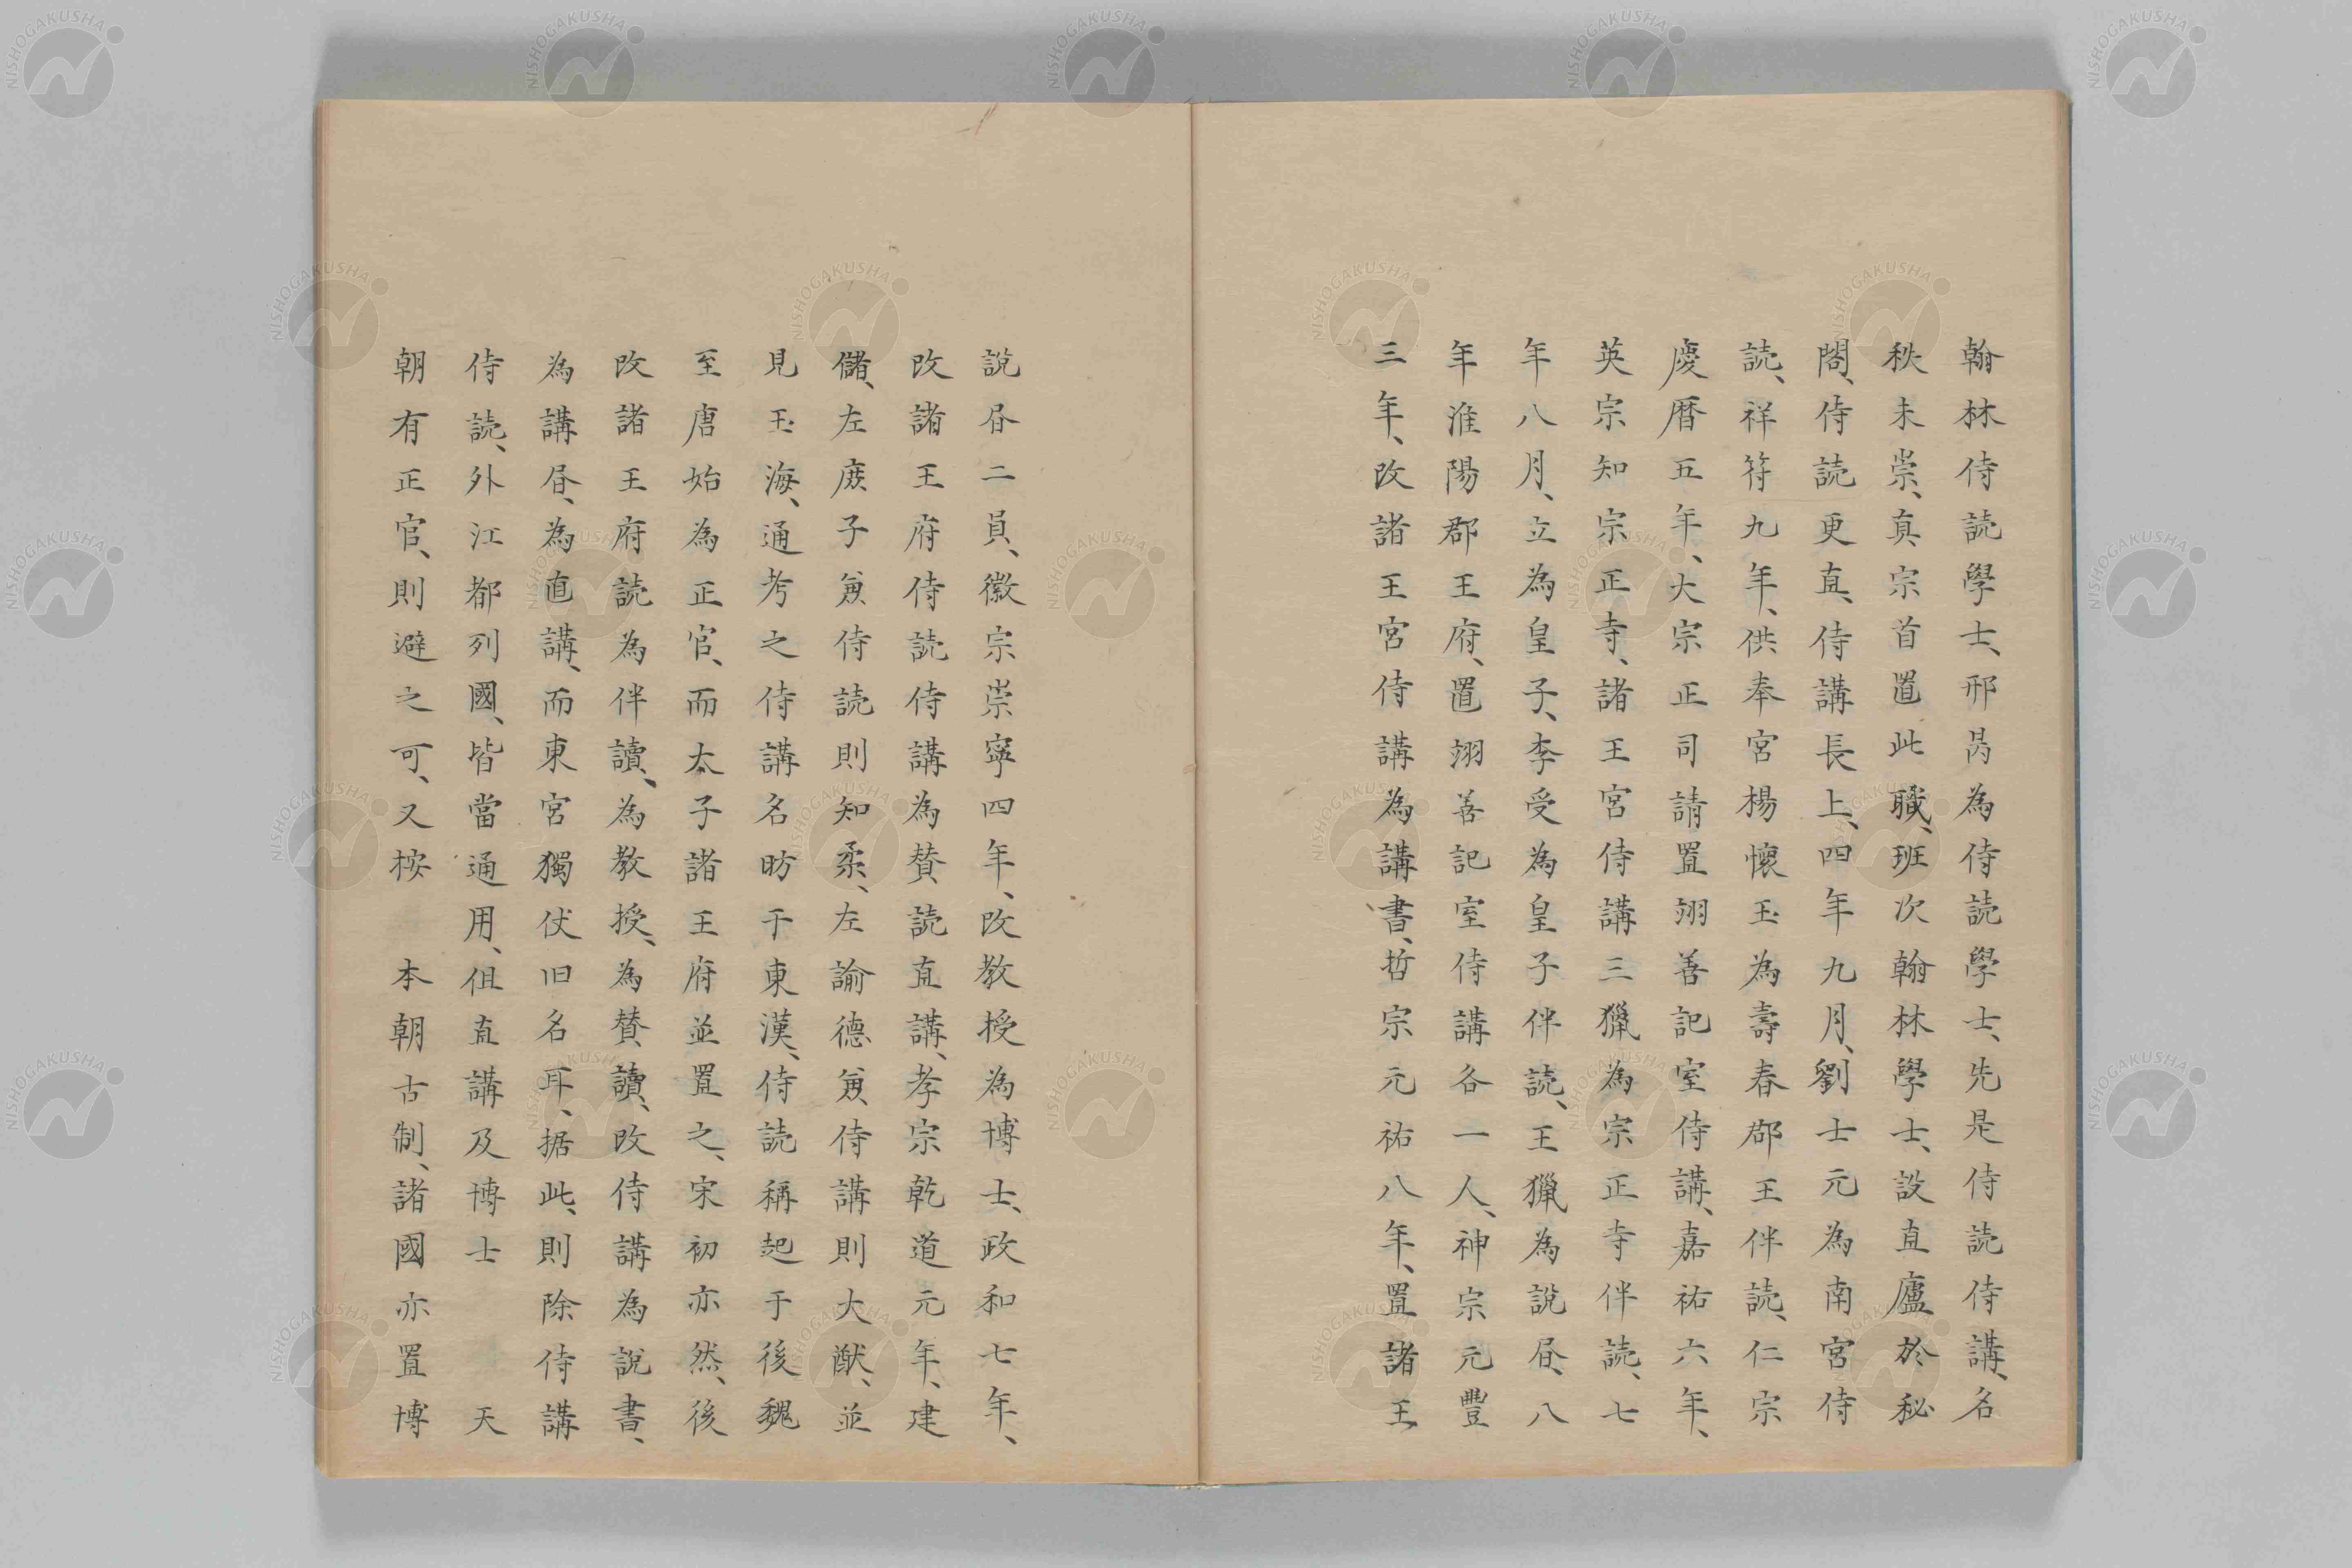 翰林侍読學士、邢昺為侍読學士、先是侍読侍講、名
秩未崇、真宗首置此職、班次翰林學士、設直廬於秘
閣、侍読更直、侍講長上、四年九月、劉士元為南宮侍
読、祥符九年、供奉官楊懷玉為壽春郡王伴読、仁宗
慶暦五年、大宗正司請置翊善記室侍講、嘉祐六年、
英宗知宗正寺、諸王宮侍講三獵為宗正寺伴読、七
年八月、立為皇子、李受為皇子伴読、王獵為說昏、八
年淮陽郡王府、置翊善記室侍講各一人、神宗元豐
三年、改諸王宮侍講為講書、哲宗元祐八年、置諸王
說昏二員、徽宗崇寧四年、改教授為博士、政和七年、
改諸王府侍読侍講為賛読直講、孝宗乾道元年、建
儲、左庶子兼侍読則知柔、左諭德兼侍講則大猷、並
見玉海、通考之侍講名昉于東漢、侍読稱起于後魏
至唐始為正官、而太子諸王府並置之、宋初亦然、後
改諸王府読為伴讀、為教授、為賛讀、改侍講為說書、
為講昏、為直講、而東宮獨伏旧名耳、据此、則除侍講
侍読、外江都列國、皆當通用、但直講及博士　天
朝有正官、則避之可、又桉　本朝古制、諸國亦置博
NISHOGAKUSHA